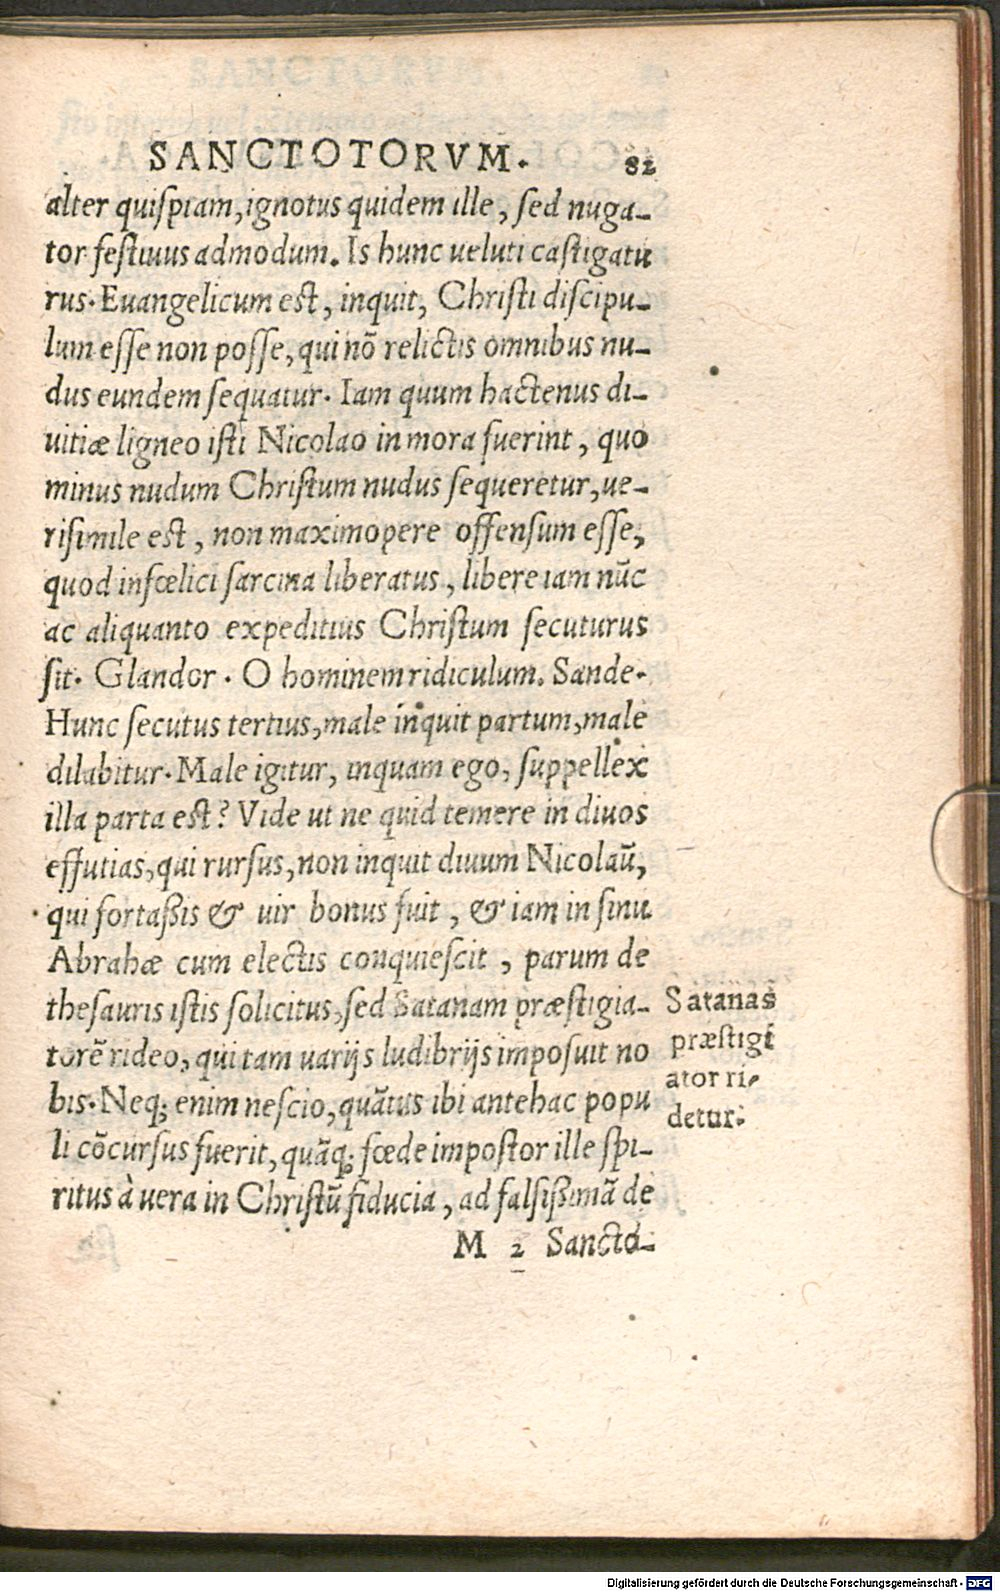 SANCTOTORVM. 82
alter quispiam, ignotus quidem ille, sed nuga-
tor festiuus admodum. Is hunc ueluti castigatu
rus. Euangelicum est, inquit, Christi discipu-
lum esse non posse, qui nõ relictis omnibus nu-
dus eundem sequatur. Iam quum hactenus di-
uitiæ ligneo isti Nicolao in mora fuerint, quo
minus nudum Christum nudus sequeretur, ue-
risimile est, non maximopere offensum esse,
quod infœlici sarcina liberatus, libere iam nũc
ac aliquanto expeditius Christum secuturus
sit. Glandor. O hominem ridiculum. Sande.
Hunc secutus tertius, male inquit partum, male
dilabitur. Male igitur, inquam ego, suppellex
illa parta est? Vide ut ne quid temere in diuos
effutias, qui rursus, non inquit diuum Nicolaũ,
qui fortaßis & uir bonus fuit, & iam in sinu
Abrahæ cum electis conquiescit, parum de
thesauris istis solicitus, sed Satanam præstigia-
torẽ rideo, qui tam uarijs ludibrijs imposuit no
bis. Neq; enim nescio, quãtus ibi antehac popu
li cõcursus fuerit, quãq; fœde impostor ille spi-
ritus à uera in Christũ fiducia, ad falsißimã de
M 2 Sancto-
Satanas
præstigi
ator ri-
detur.
Digitalisierung gefördert durch die Deutsche Forschungsgemeinschaft - DFG